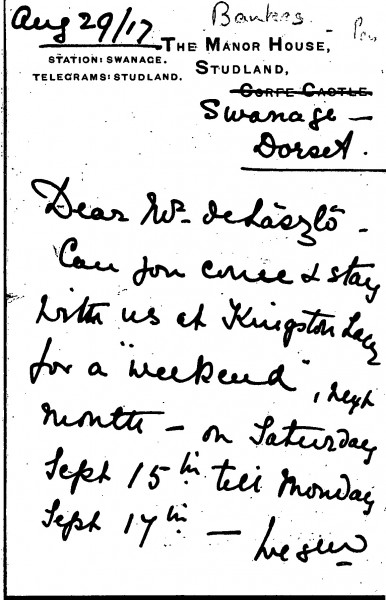 Aug 29/17
Bankes
STATION: SWANAGE.
TELEGRAMS: STUDLAND.
THE MANOR HOUSE,
STUDLAND,
CORFE CASTLE.
Swanage —
Dorset.
Dear Mr. de László —
Can you come & stay
with us at Kingston Lacy
for a "weekend", next
month — on Saturday
Sept 15th till Monday
Sept 17th —